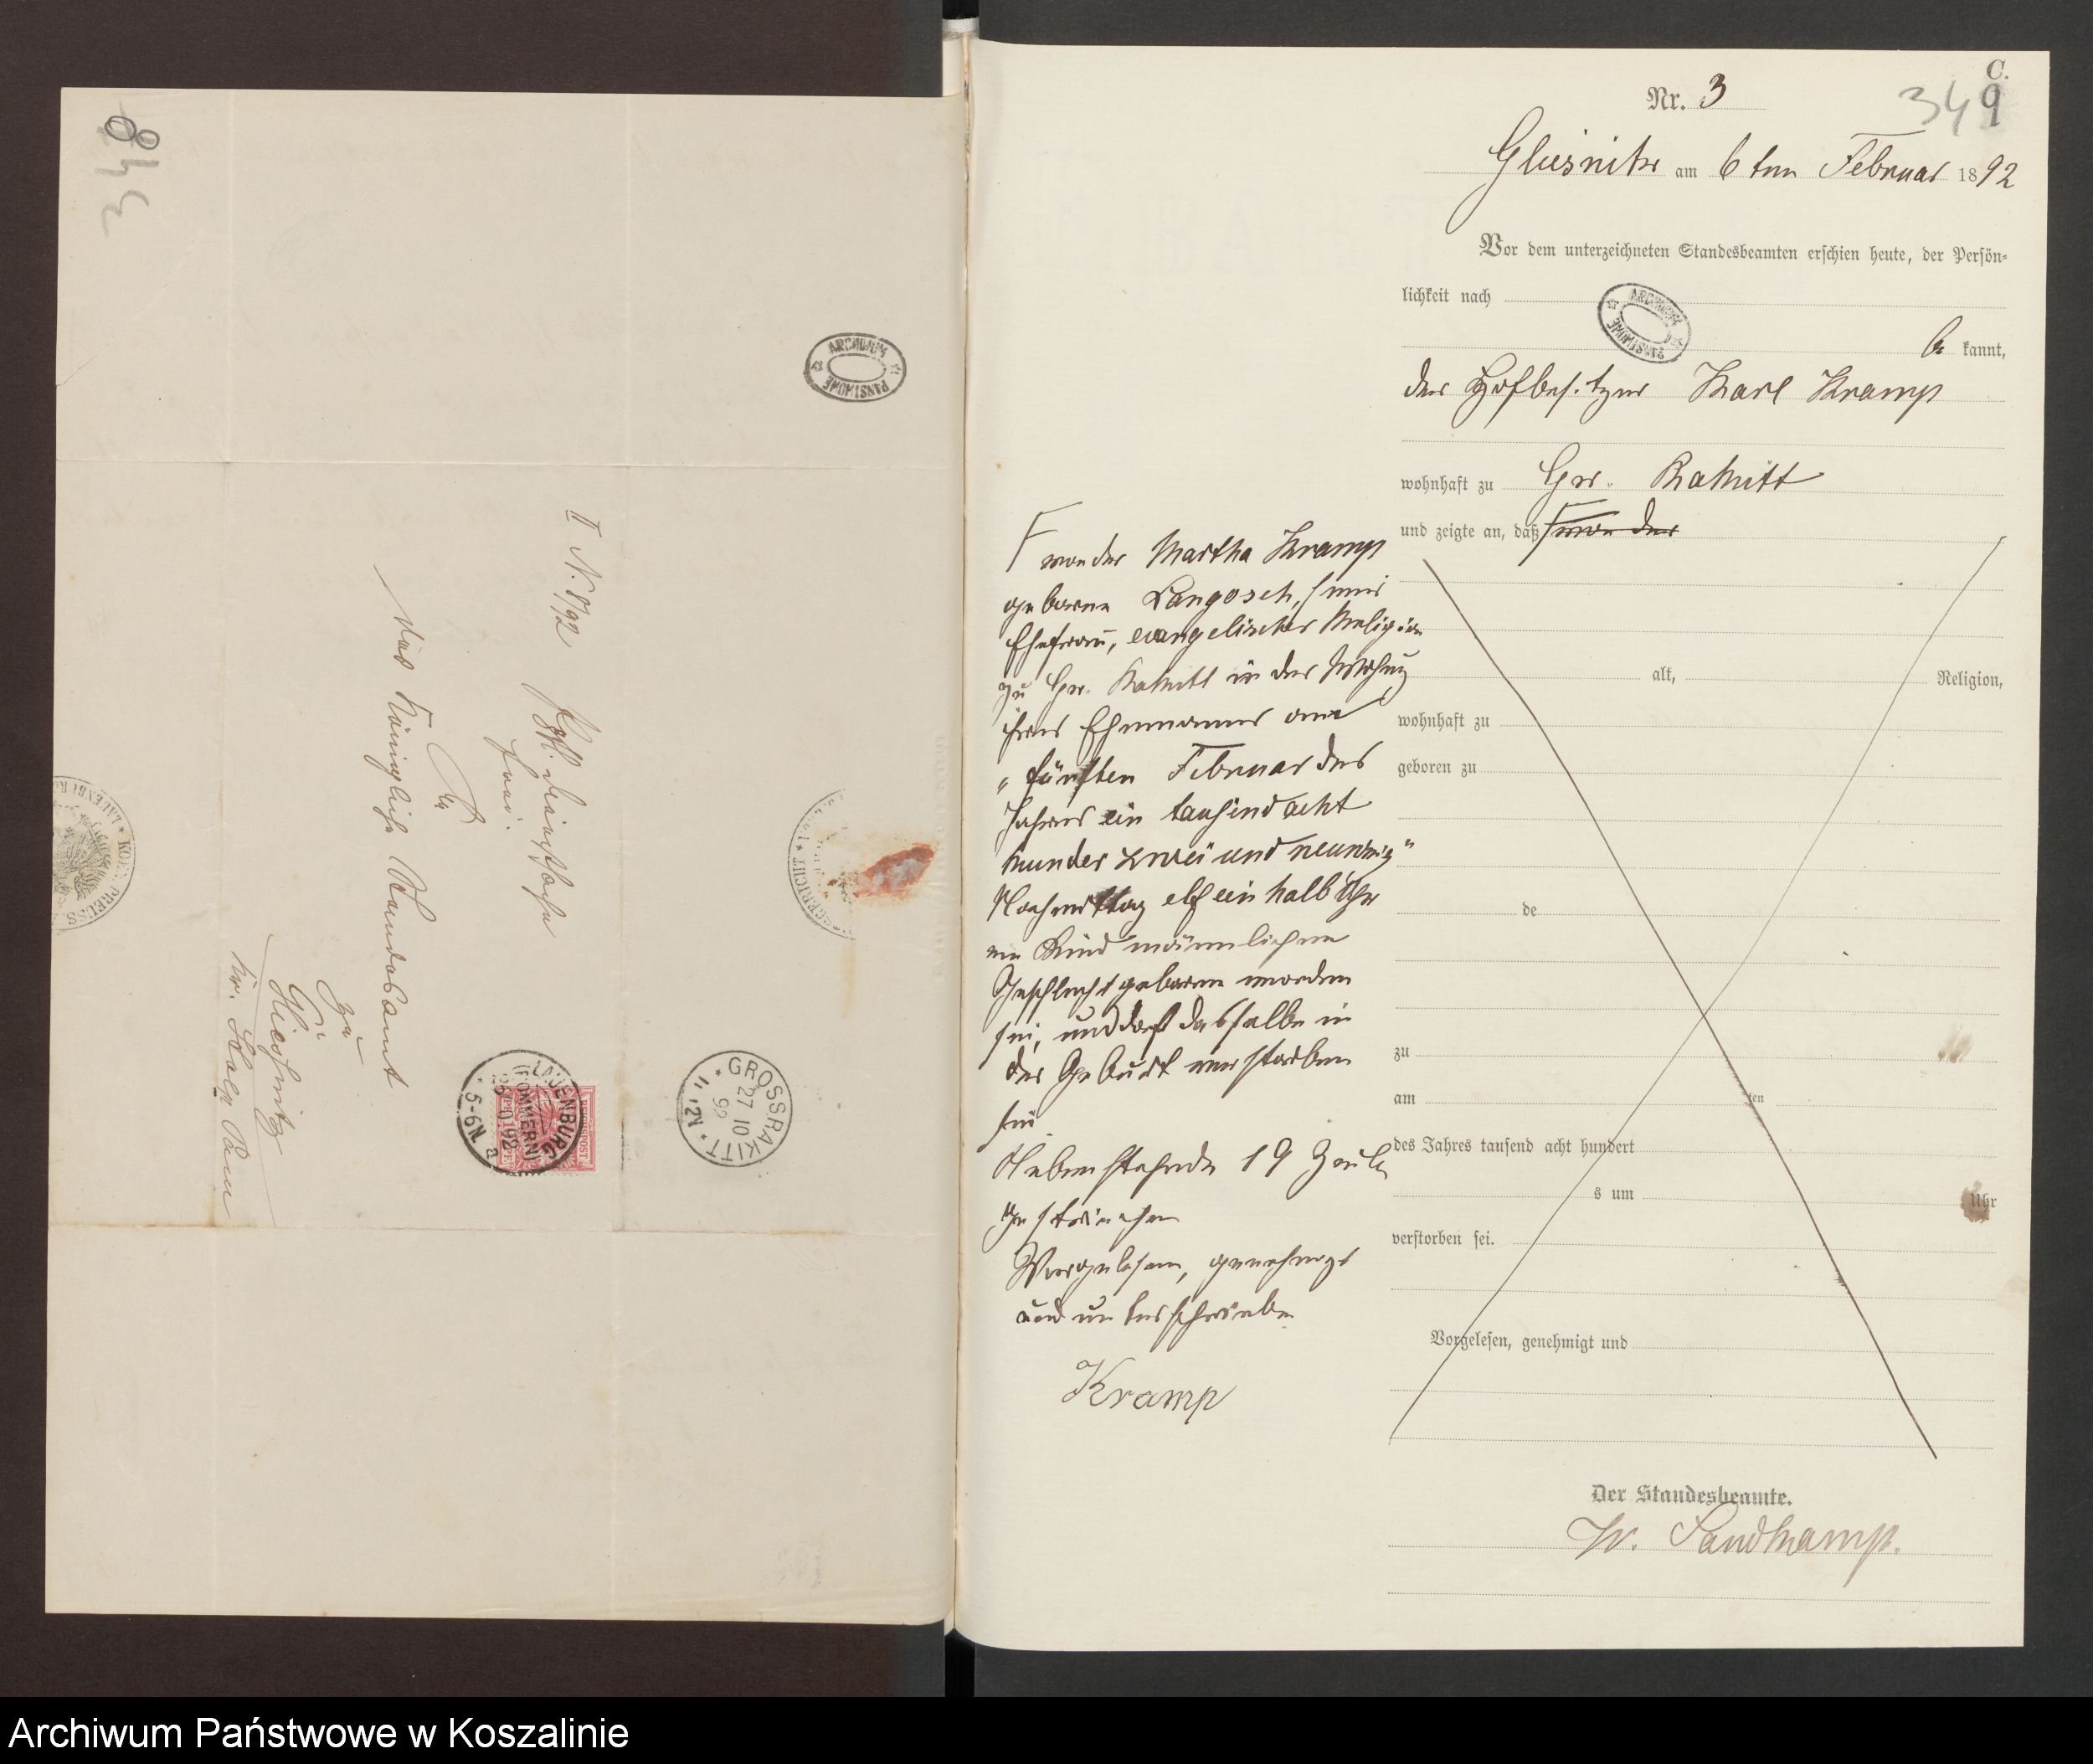 348
ARCHIWUM PAŃSTWOWE
II N. 8/92
Kgl. Dienstsache
frei.
An
das Königliche Standesamt
zu
Gr.
Gliesnitz
Kr. Stolp Pom
LAUENBURG
(POMMERN)
5-6N.
REICHSPOST
GROSSRAKITT
27 10
92
11-12N.
GERICHT
KÖN. PREUSS.
LAUENBURG
C.
349
Nr. 3
Gliesnitz am 6ten Februar 1892
Vor dem unterzeichneten Standesbeamten erschien heute, der Persön-
lichkeit nach
ARCHIWUM PAŃSTWOWE
be kannt,
der Hofbesitzer Karl Kramp
wohnhaft zu Gr. Rakitt
und zeigte an, daß von der
von der Martha Kramp
geborene Langosch, seiner
Ehefrau, evangelischer Religion
zu Gr. Rakitt in der Wohnung
ihres Ehemannes am
„fünften Februar des
Jahres ein tausend acht
hunder zwei und neunzig“
Nachmittag elf ein halb Uhr
ein Kind männlichen
Geschlecht geboren worden
sei, und daß dasselbe in
der Geburt verstorben
sei
Nebenstehende 19 Zeilen
gestrichen
Vorgelesen, genehmigt
und unterschrieben
Kramp
alt, Religion,
wohnhaft zu
geboren zu
de
zu
am ten
des Jahres tausend acht hundert
s um Uhr
verstorben sei.
Vorgelesen, genehmigt und
Der Standesbeamte.
W. Sandkamp.
Archiwum Państwowe w Koszalinie